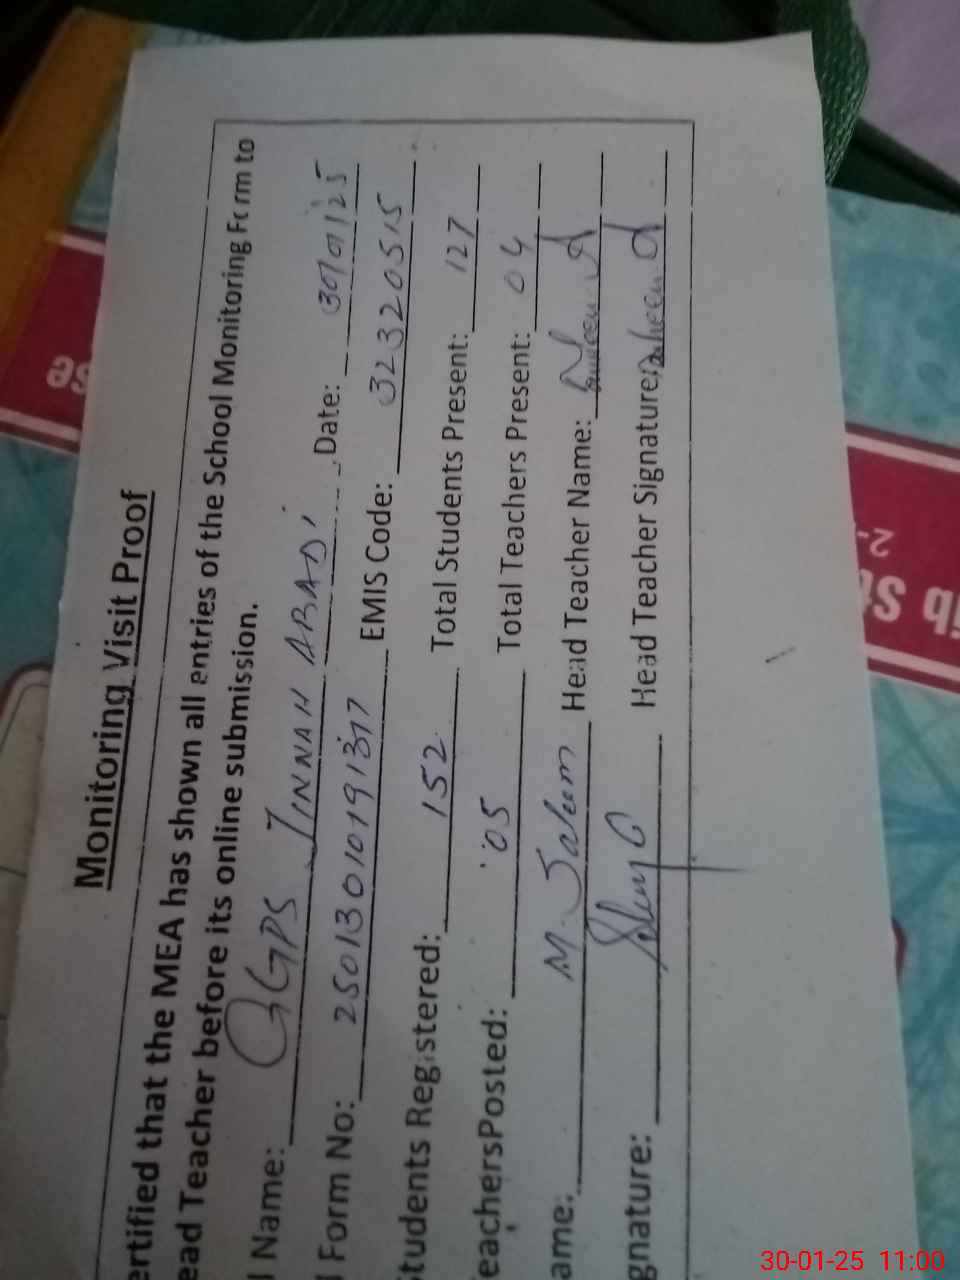 Monitoring Visit Proof
ertified that the MEA has shown all entries of the School Monitoring Form to
ead Teacher before its online submission.
l Name: GGPS JINNAH ABADI Date: 30/01/25
l Form No: 25013010191377 EMIS Code: 32320515
Students Registered: 152 Total Students Present: 127
eachersPosted: 05 Total Teachers Present: 04
ame: M. Saleem Head Teacher Name:
gnature: Head Teacher Signature:
se
2-
ib St
30-01-25 11:00